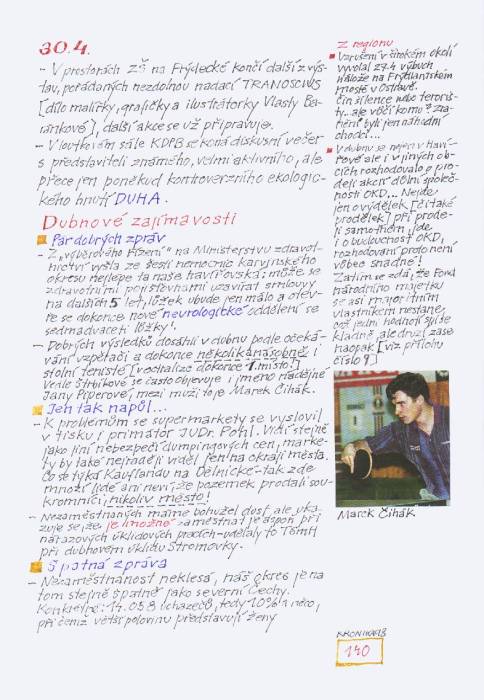 30.4.
- V prostorách ZŠ na Frýdecké končí další z výs-
tav, pořádaných nezdolnou nadací TRANOSCIUS
[dílo malířky, grafičky a ilustrátorky Vlasty Ba-
ránkové], další akce se už připravuje.
- V loutkovém sále KDPB se koná diskusní večer
s představiteli známého, velmi aktivního, ale
přece jen poněkud kontroverzního ekologic-
kého hnutí DUHA.
Dubnové zajímavosti
Pár dobrých zpráv
- Z „výběrového řízení" na Ministerstvu zdravot-
nictví vyšla ze šesti nemocnic karvinského
okresu nejlépe ta naše havířovská: může se
zdravotními pojišťovnami uzavírat smlouvy
na dalších 5 let, lůžek ubude jen málo a otev-
ře se dokonce nové neurologické oddělení se
sedmadvaceti lůžky!
- Dobrých výsledků dosáhli v dubnu podle očeká-
vání vzpěrači a dokonce několikanásobně i
stolní tenisté [v soutěži dokonce 1. místo!]
Vedle Štrbíkové se často objevuje i jméno nadějné
Jany Piperové, mezi muži to je Marek Čihák.
Jen tak napůl...
- K problémům se supermarkety se vyslovil
v tisku i primátor JUDr. Pohl. Vidí stejně
jako jiní nebezpečí dumpingových cen, marke-
ty by také nejraději viděl jen na okraji města.
Co se týká Kauflandu na Dělnické - tak zde
mnozí lidé ani neví, že pozemek prodali sou-
kromníci, nikoliv město!
- Nezaměstnaných máme bohužel dost, ale uka-
zuje se, že je možné zaměstnat je aspoň při
nárazových úklidových pracích - udělaly to TSMH
při dubnovém úklidu Stromovky.
Špatná zpráva
- Nezaměstnanost neklesá, náš okres je na
tom stejně špatně jako severní Čechy.
Konkrétně: 14.058 uchazečů, tedy 10% a něco,
při čemž větší polovinu představují ženy
Z regionu
Vzrušení v širokém okolí
vyvolal 27.4 výbuch
nálože na Frýdlantském
mostě v Ostravě.
Čin šílence nebo teroris-
ty... ale vůči komu? Zra-
nění byli jen náhodní
chodci...
V dubnu se nejen v Haví-
řově ale i v jiných ob-
cích rozhodovalo o pro-
deji akcií důlní společ-
nosti OKD... Nejde
jen o výdělek [či také
prodělek] při prode-
ji samotném, jde
i o budoucnost OKD,
rozhodování proto není
vůbec snadné!
Zatím se zdá, že Fond
národního majetku
se asi majoritním
vlastníkem nestane,
což jedni hodnotí sice
kladně, ale druzí zase
naopak [viz příloha
číslo 9]
Marek Čihák
KRONIKÁŘ
140